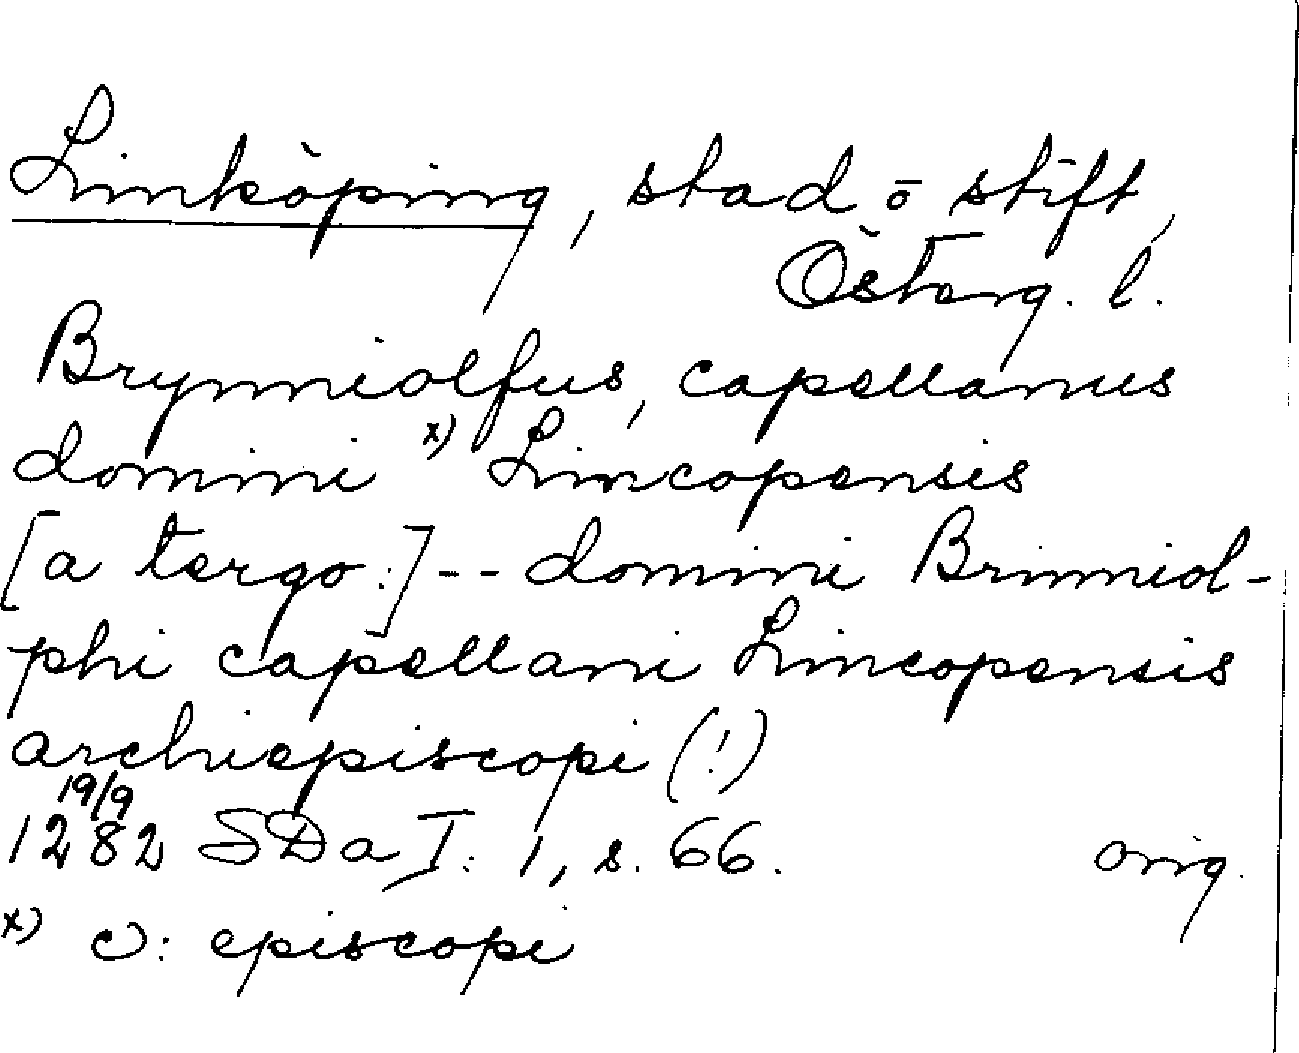 Linköping, stad o stift,
Österg. l.
Brynniolfus, capellanus
domini x) Lincopensis
[a tergo:] -- domini Brinniol-
phi capellani Lincopensis
archiepiscopi (!)
19/9
1282 SDa I: 1, s. 66. orig.
x) ɔ: episcopi